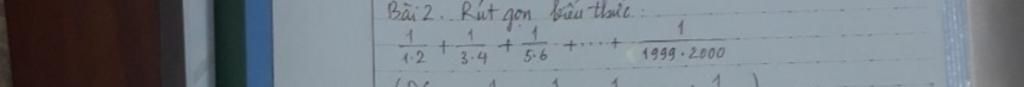 Bài 2. Rút gọn biểu thức:
1/1·2 + 1/3·4 + 1/5·6 + ··· + 1/1999·2000